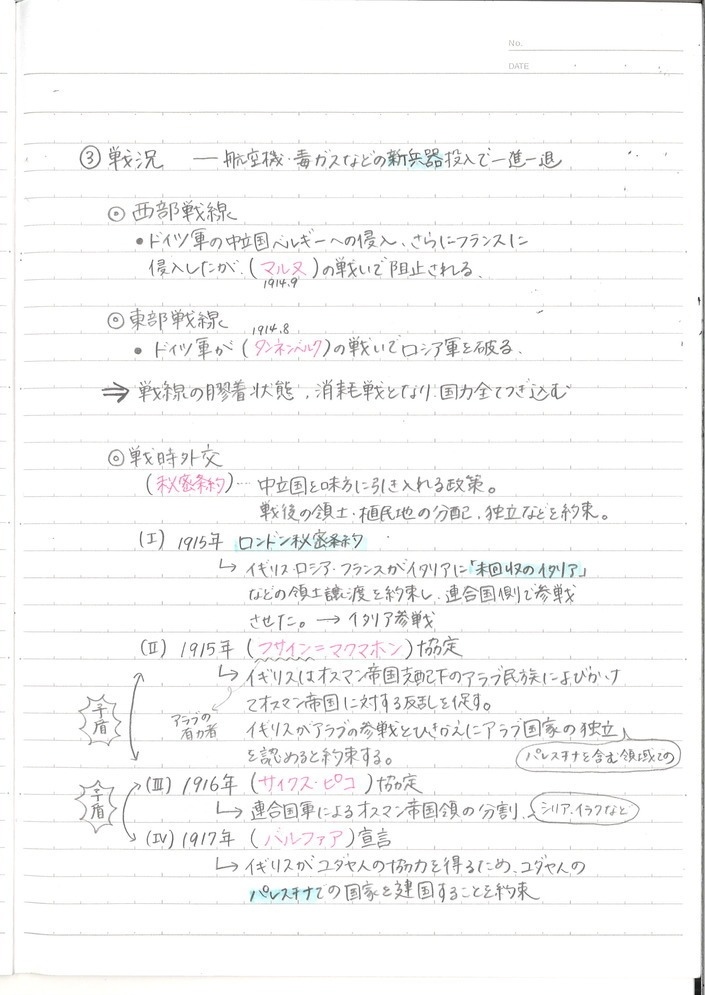 No.
DATE
③ 戦況 ― 航空機・毒ガスなどの新兵器投入で一進一退
◎ 西部戦線
• ドイツ軍の中立国ベルギーへの侵入、さらにフランスに
侵入したが、(マルヌ)の戦いで阻止される。
1914.9
◎ 東部戦線
1914.8
• ドイツ軍が(タンネンベルク)の戦いでロシア軍を破る。
⇒ 戦線の膠着状態、消耗戦となり、国力全てつぎ込む
◎ 戦時外交
(秘密条約)… 中立国を味方に引き入れる政策。
戦後の領土・植民地の分配、独立などを約束。
(Ⅰ) 1915年 ロンドン秘密条約
↳ イギリス・ロシア・フランスがイタリアに「未回収のイタリア」
などの領土譲渡を約束し、連合国側で参戦
させた。→ イタリア参戦
(Ⅱ) 1915年 (フサイン=マクマホン)協定
↳ イギリスはオスマン帝国支配下のアラブ民族によびかけ
てオスマン帝国に対する反乱を促す。
アラブの有力者
矛盾
イギリスがアラブの参戦とひきかえにアラブ国家の独立
を認めると約束する。
パレスチナを含む領域での
矛盾
(Ⅲ) 1916年 (サイクス・ピコ)協定
↳ 連合国軍によるオスマン帝国領の分割。
シリア、イラクなど
(Ⅳ) 1917年 (バルファア)宣言
↳ イギリスがユダヤ人の協力を得るため、ユダヤ人の
パレスチナでの国家を建国することを約束